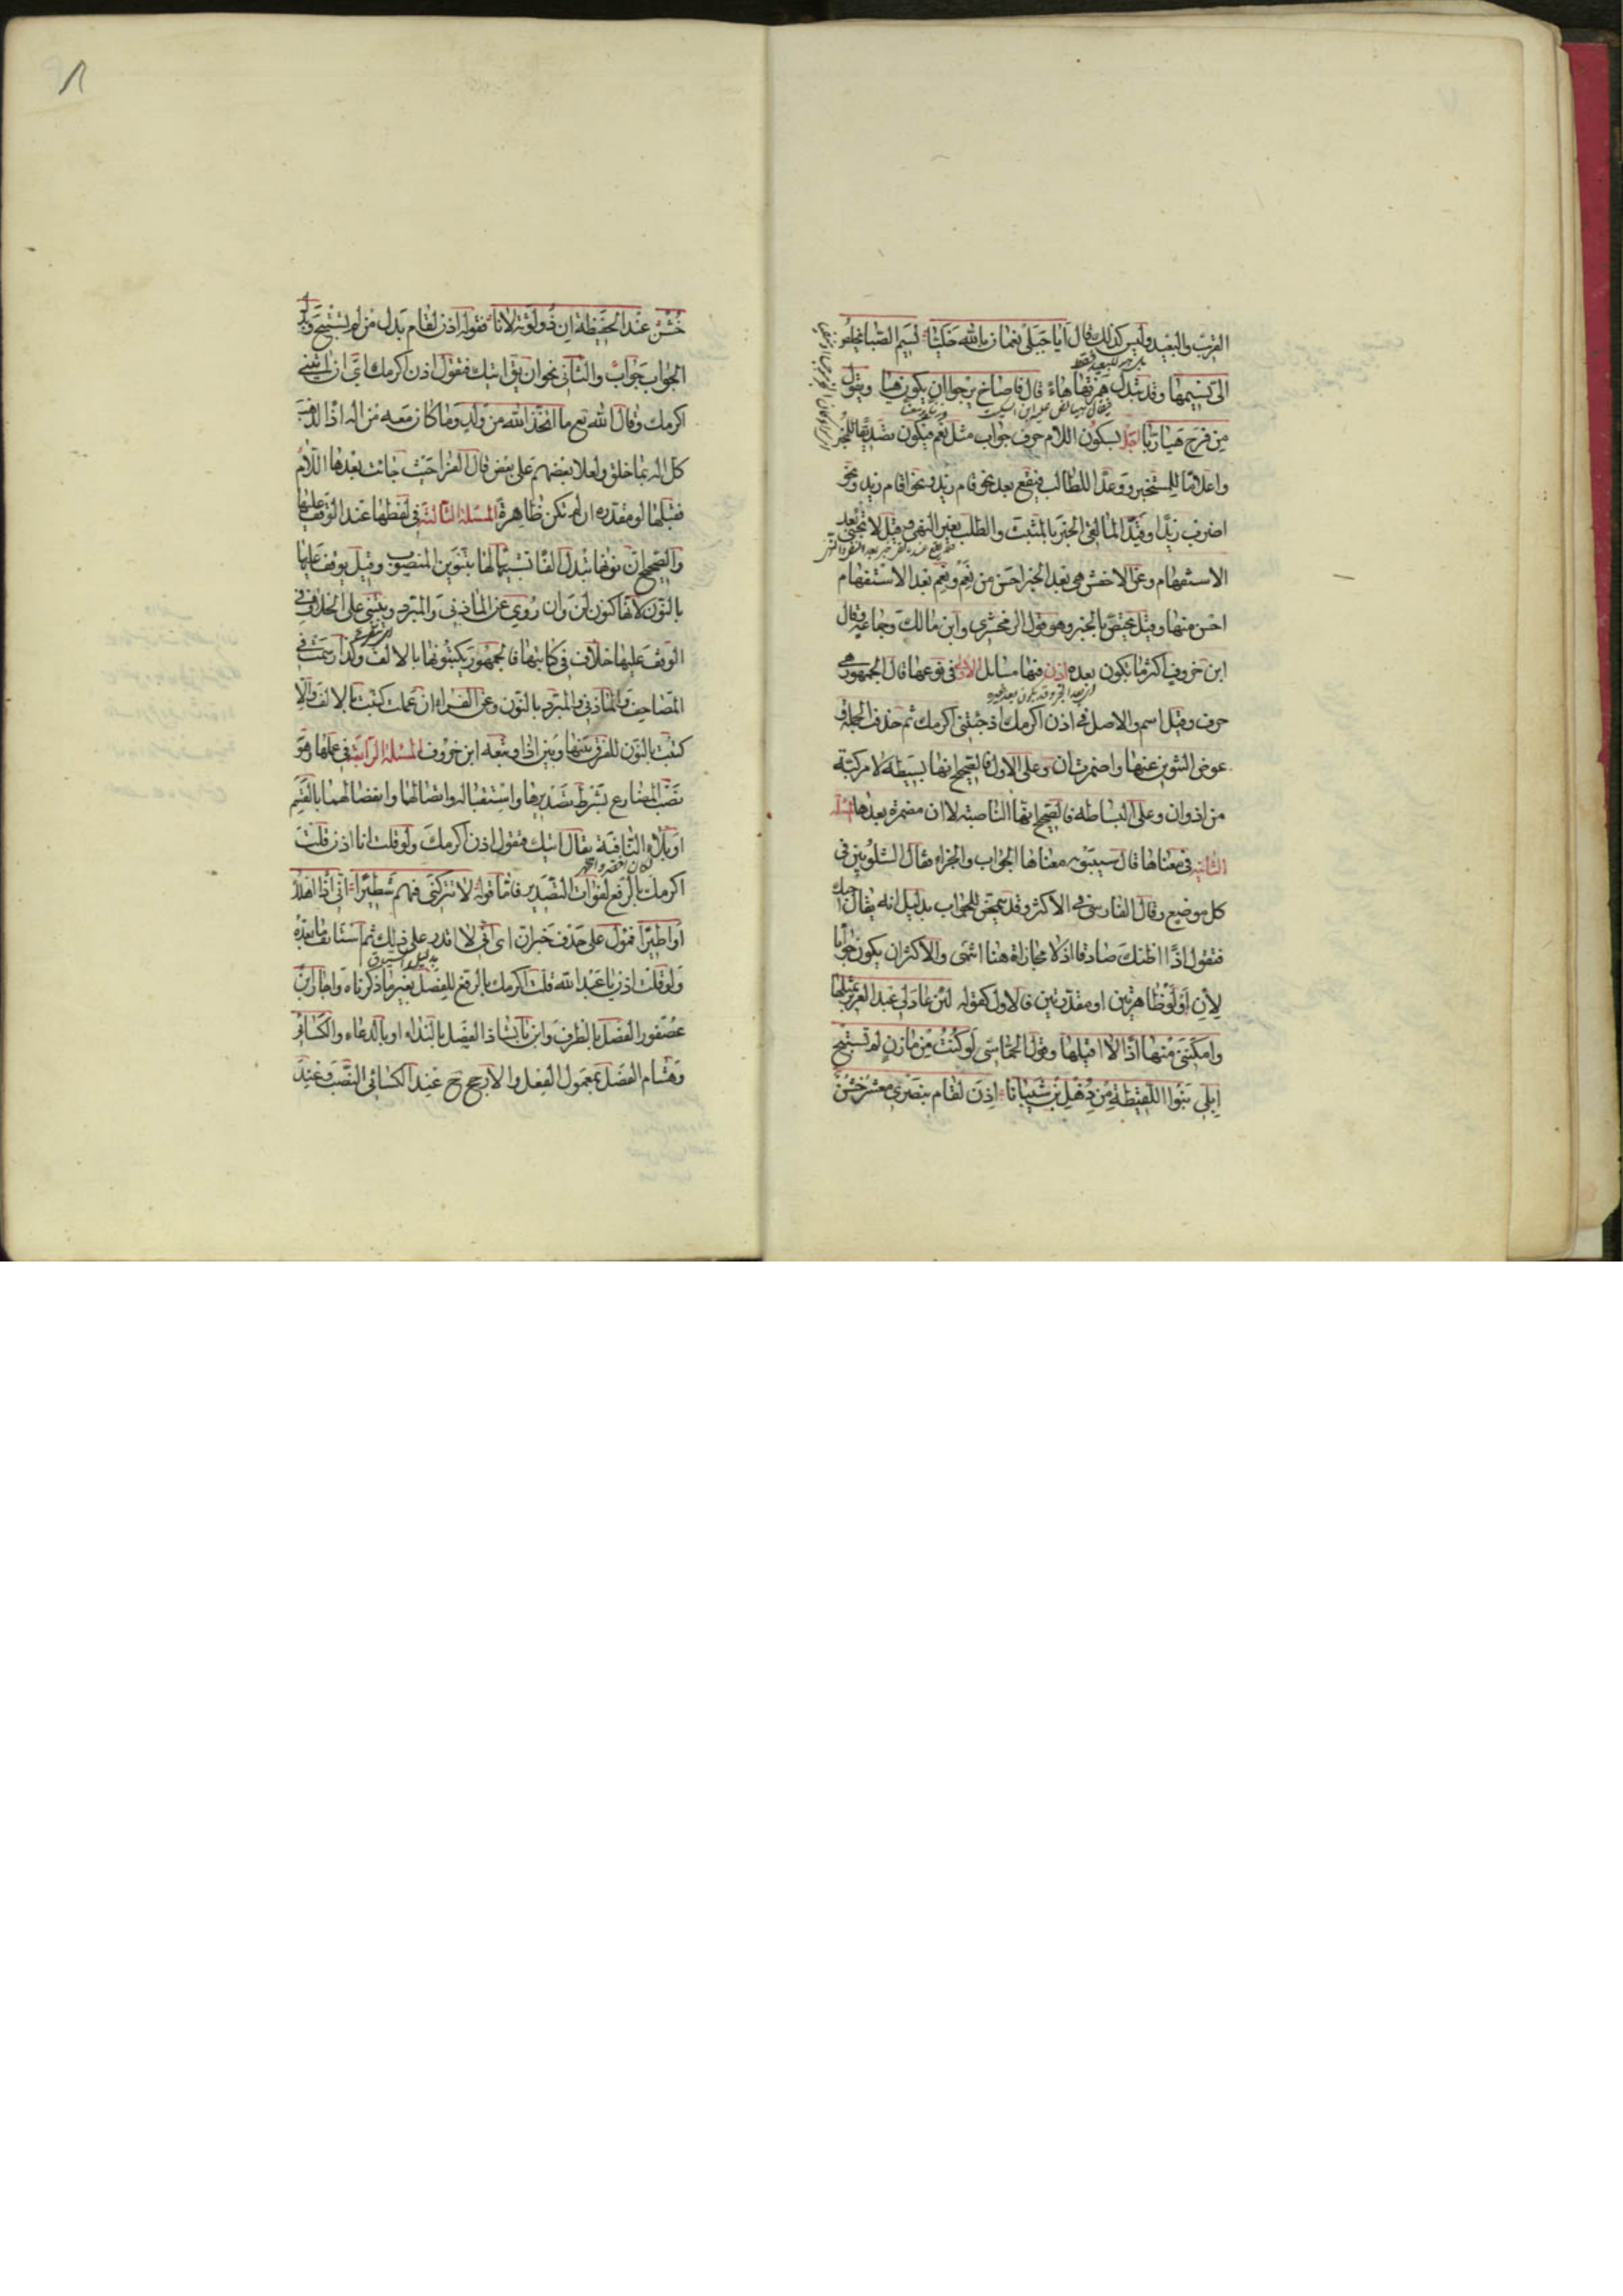 القريب والبعيد وليس كذلك قال ايا جبلى نعمان بالله خليا نسيم الصبا يخلص
الى نسيمها وقد تبدل همزتها هاء قال فاصاخ يرجو ان يكون حيا ويقول
من فرح هيا ربا اجل بسكون اللام حرف جواب مثل نعم فيكون تصديقا للمخبر
واعلاما للمستخبر ووعدا للطالب فيقع بعد نحو قام زيد ونحو اقام زيد ونحو
اضرب زيدا وقيد المالقى الخبر بالمثبت والطلب بغير النهى وقيل لا تجئ بعد
الاستفهام وعن الاخفش هى بعد الخبر احسن من نعم ونعم بعد الاستفهام
احسن منها وقيل يختص بالخبر وهو قول الزمخشرى وابن مالك وجماعة وقال
ابن خروف اكثر ما يكون بعده اذن فيها مسائل الاولى فى نوعها قال الجمهور هى
حرف وقيل اسم والاصل فى اذن اكرمك اذ جئتنى اكرمك ثم حذفت الجملة و
عوض التنوين عنها واضمرت ان وعلى الاول فالصحيح انها بسيطة لا مركبة
من اذ وان وعلى البساطة فالصحيح انها الناصبة لا ان مضمرة بعدها المسئلة
الثانية فى معناها قال سيبويه معناها الجواب والجزاء فقال الشلوبين فى
كل موضع وقال الفارسى فى الاكثر وقد تتمحض للجواب بدليل انه يقال احبك
فتقول اذا اظنك صادقا اذ لا مجازاة هنا انتهى والاكثر ان يكون جوابا
لإن او لو ظاهرتين او مقدرتين فالاول كقوله لئن عاد لى عبد العزيز بمثلها
وامكننى منها اذا لا اقيلها وقول الحماسى لو كنت من مازن لم تستبح
ابلى بنوا اللقيطة من ذهل بن شيبانا اذن لقام بنصرى معشر خشن
خشن عند الحفيظة ان ذو لوثة لانا فقوله اذن لقام بدل من لم تستبح وبدل
الجواب جواب والثانى نحو ان يق اتيك فتقول اذن اكرمك اى ان اتيتنى
اكرمك وقال الله تع ما اتخذ الله من ولد وما كان معه من اله اذا لذهب
كل اله بما خلق ولعلا بعضهم على بعض قال الفرا حيث جائت بعدها اللام
فقبلها لو مقدرة ان لم تكن ظاهرة المسئلة الثالثة فى لفظها عند الوقف عليها
والصحيح ان نونها تبدل الفا تشبيها لها بتنوين المنصوب وقيل يوقف عليها
بالنون لانها كنون لن وان روى عن المازنى والمبرد ويبتنى على الخلاف فى
الوقف عليها خلاف فى كتابتها فالجمهور يكتبونها بالالف وكذا رسمت فى
المصاحف والمازنى والمبرد بالنون وعن الفراء ان عملت كتبت بالالف والا
كتبت بالنون للفرق بينها وبين اذا وتبعه ابن خروف المسئلة الرابعة فى عملها وهو
نصب المضارع بشرط تصديرها واستقباله واتصالهما وانفصالهما بالقسم
او بلاء النافية يقال اتيك فتقول اذن اكرمك ولو قلت انا اذن قلت
اكرمك بالرفع لفوات التصدير فاما قوله لا تتركنى فيهم شطيرا انى اذا اهلك
او اطيرا فمؤل على حذف خبر ان اى انى لا اقدر على ذلك ثم استانف ما بعده
ولو قلت اذن يا عبد الله قلت اكرمك بالرفع للفصل بغير ما ذكرناه واجاز ابن
عصفور الفصل بالظرف وابن بابشاذ الفصل بالنداء او بالدعاء والكسائى
وهشام الفصل بمعمول الفعل والارجح ح عند الكسائى النصب وعند